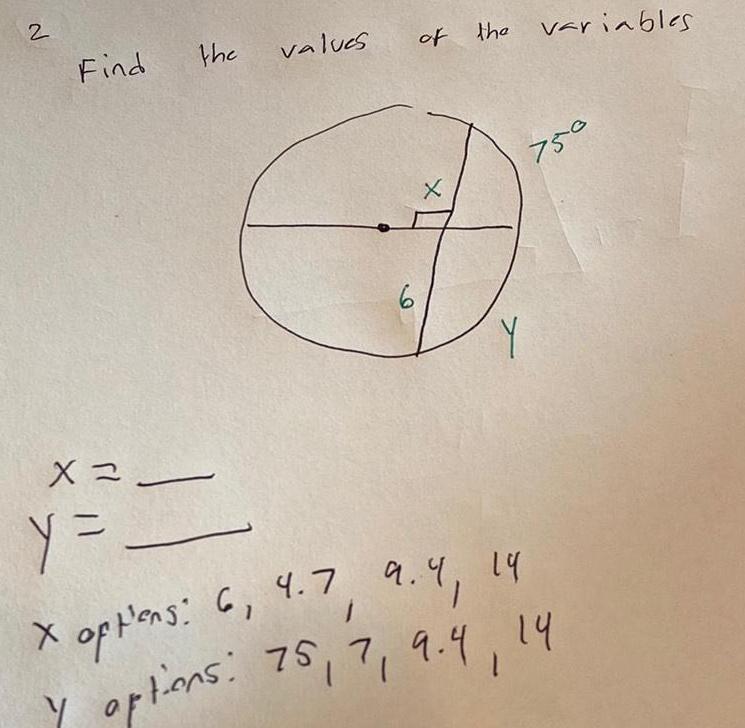 2
Find the values of the variables
75°
x
6
y
x = __
y = __
x options: 6, 4.7, 9.4, 14
y options: 75, 7, 9.4, 14